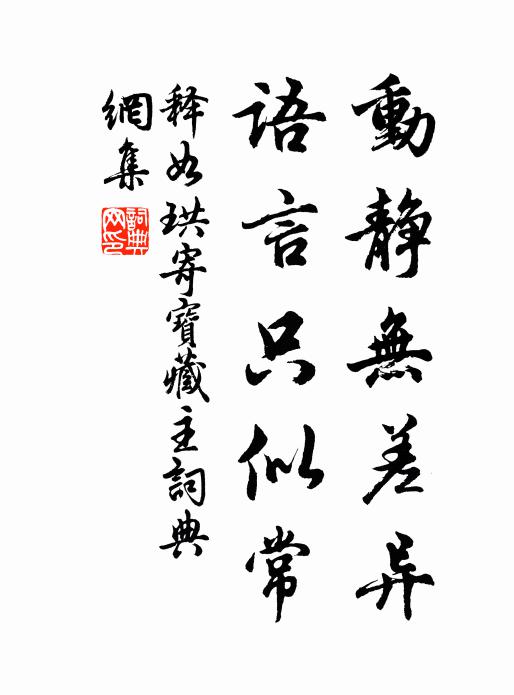 動靜無差异
語言只似常
释如珙寄寶藏主詞典
網集
詞典网印